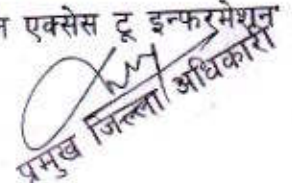 एक्सेस टू इन्फरमेशन
प्रमुख जिल्ला अधिकारी